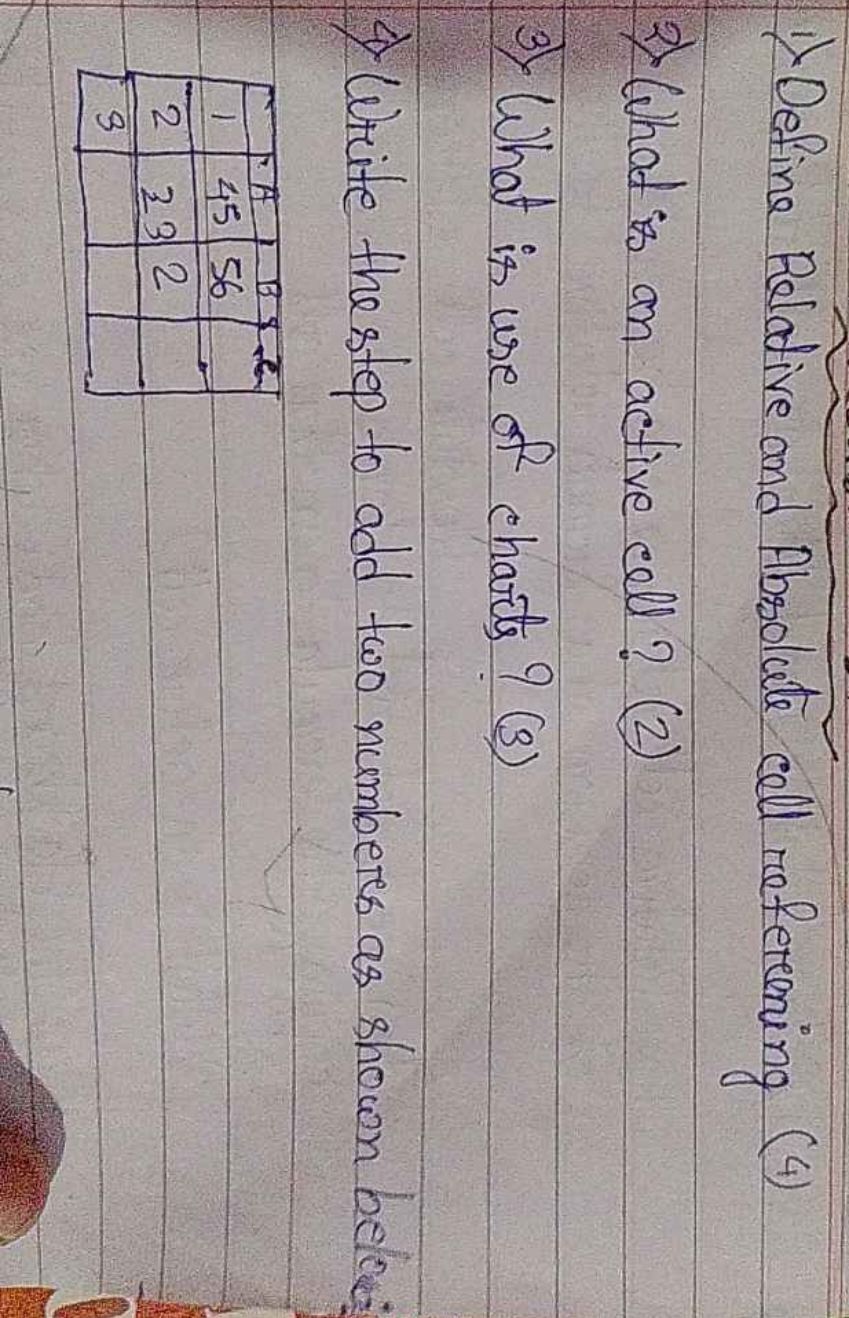 1) Define Relative and Absolute cell referening (4)
2) What is an active cell? (2)
3) What is use of charts? (3)
4) Write the step to add two numberes as shown below:
A B C
1 45 56
2 23 2
3